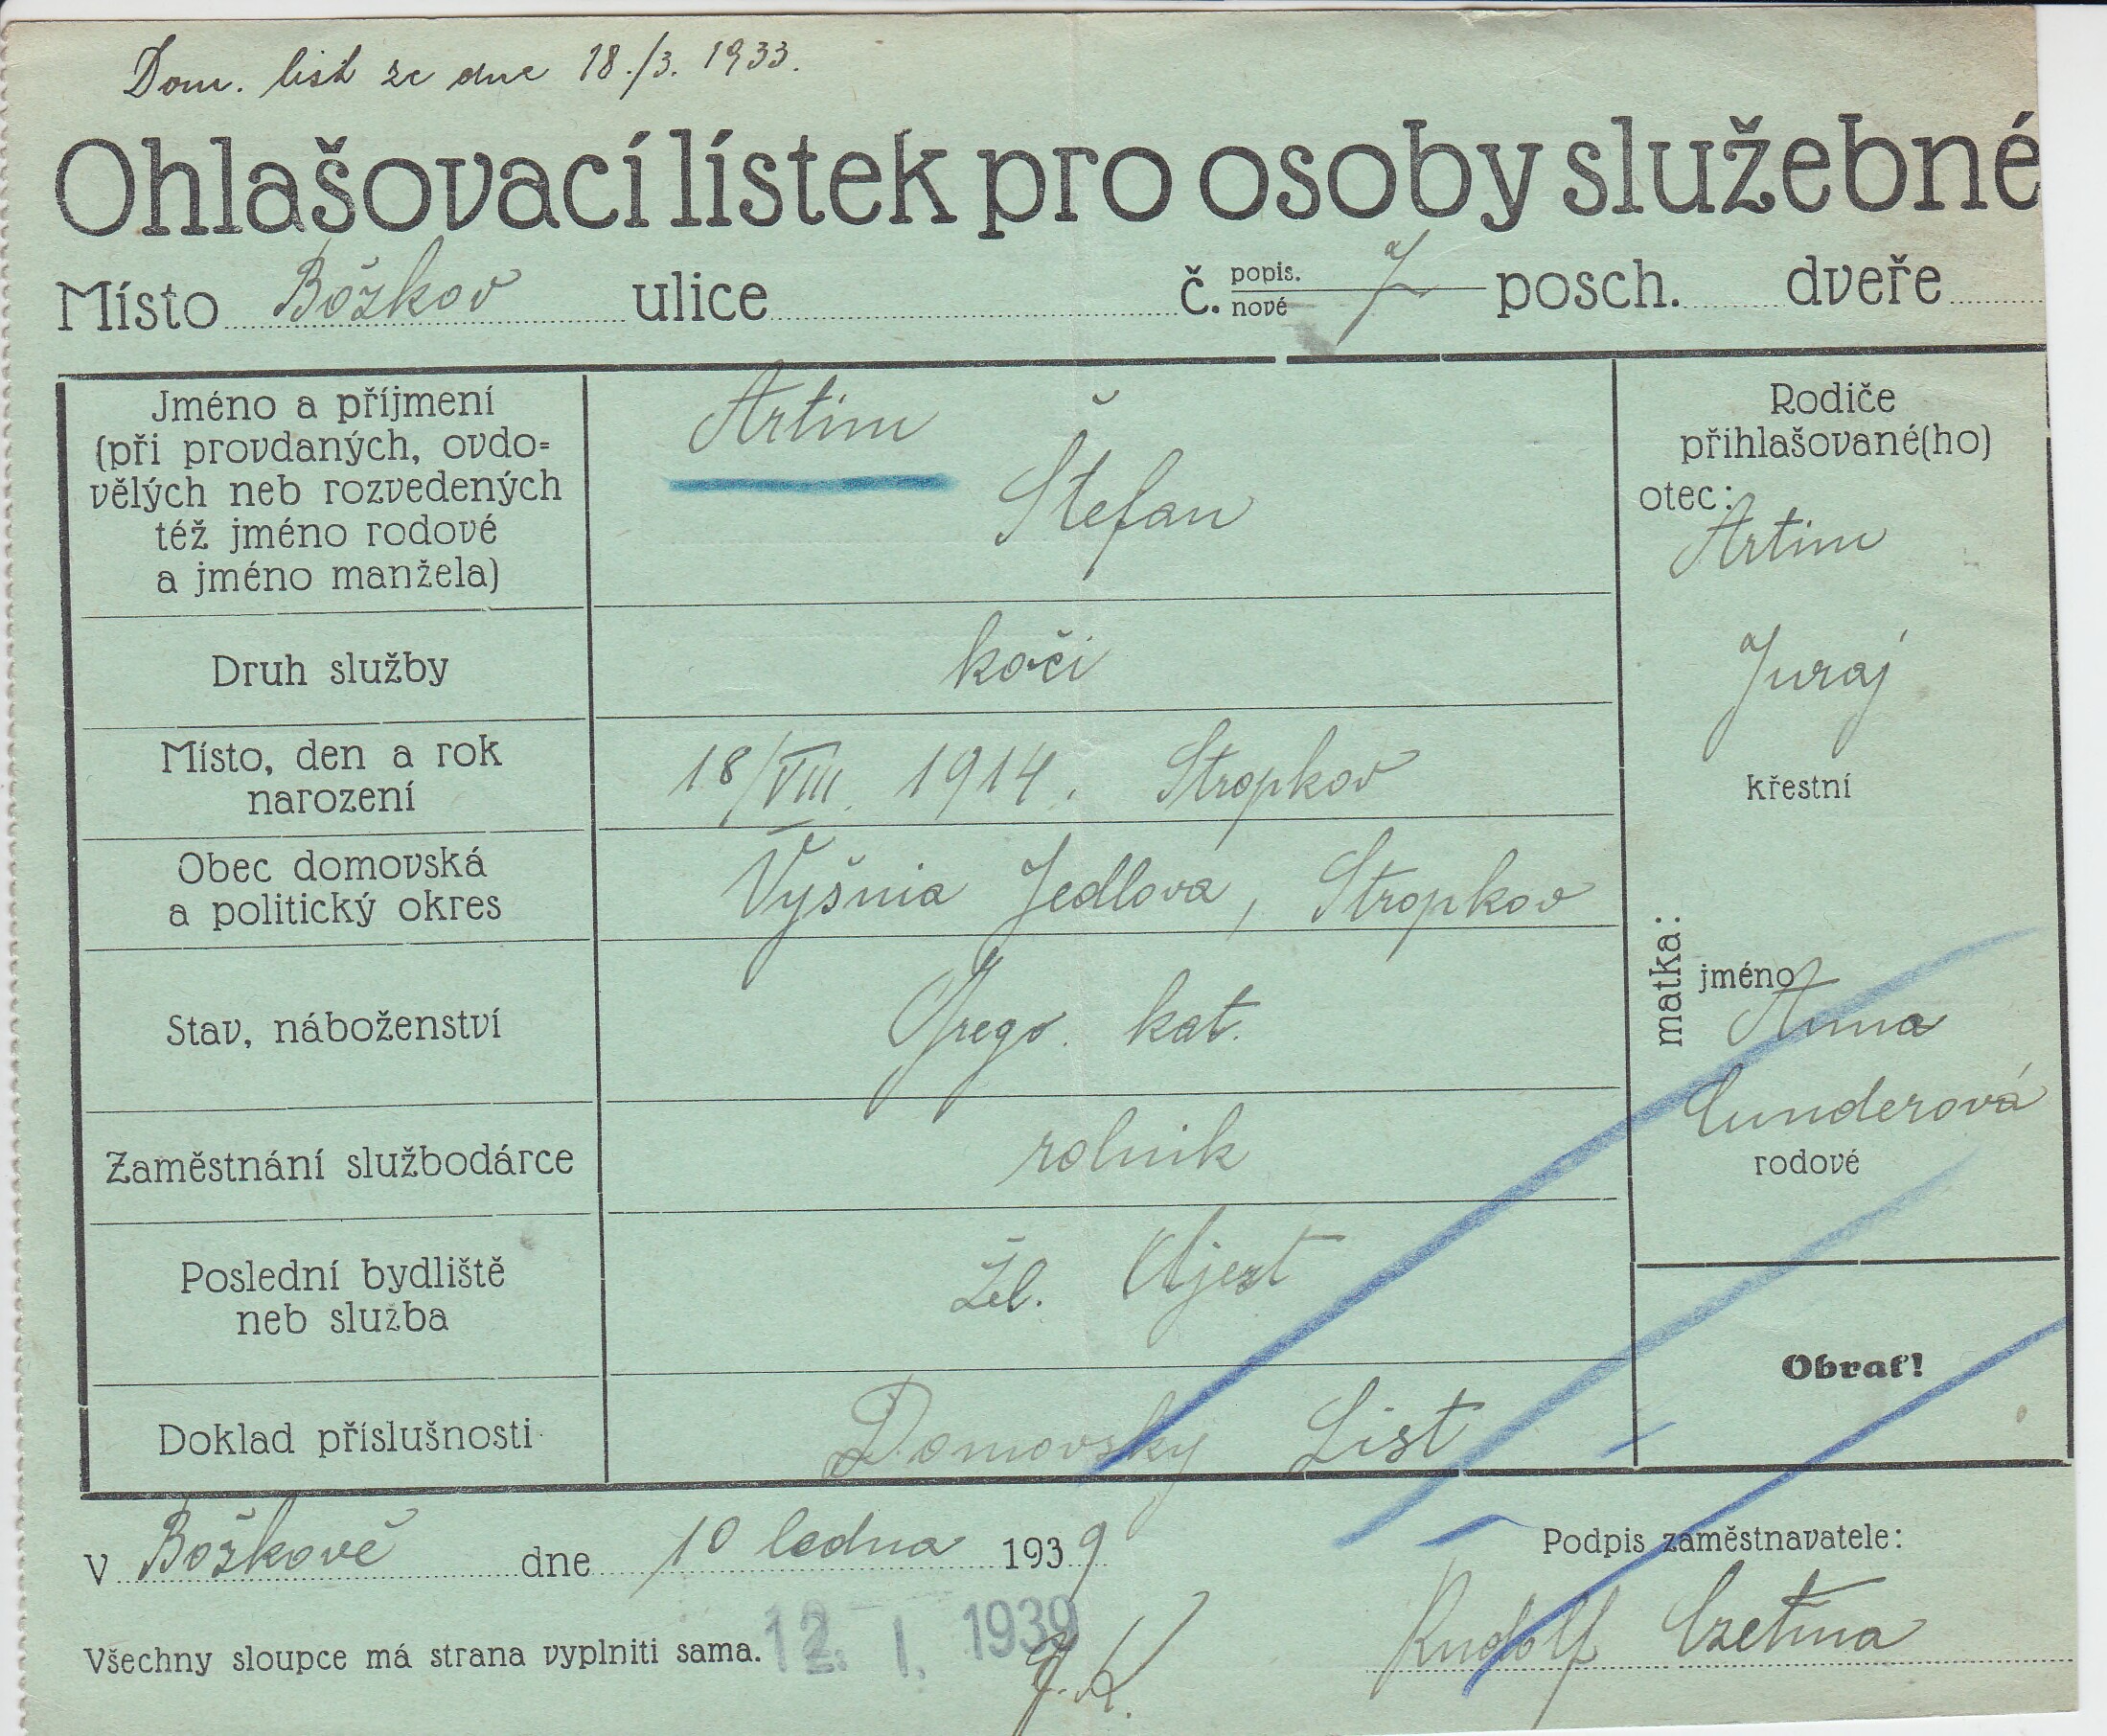 Dom. list ze dne 18./3. 1933.
Ohlašovací lístek pro osoby služebné
Místo Božkov ulice č. popis. nové 7 posch. dveře
Jméno a příjmení
(při provdaných, ovdo=
vělých neb rozvedených
též jméno rodové
a jméno manžela)
Artim
Štefan
Druh služby
kočí
Místo, den a rok
narození
18/VIII. 1914. Stropkov
Obec domovská
a politický okres
Vyšnia Jedlova, Stropkov
Stav, náboženství
kat.
Zaměstnání službodárce
rolnik
Poslední bydliště
neb služba
Žel. Ujezt
Doklad příslušnosti
Domovsky List
Rodiče
přihlašované(ho)
otec:
Artim
Juraj
křestní
matka:
jméno
Anna
Cunderová
rodové
Obrať!
V Božkově dne 10 ledna 1939
Podpis zaměstnavatele:
Rudolf Czetina
Všechny sloupce má strana vyplniti sama.
12. I. 1939